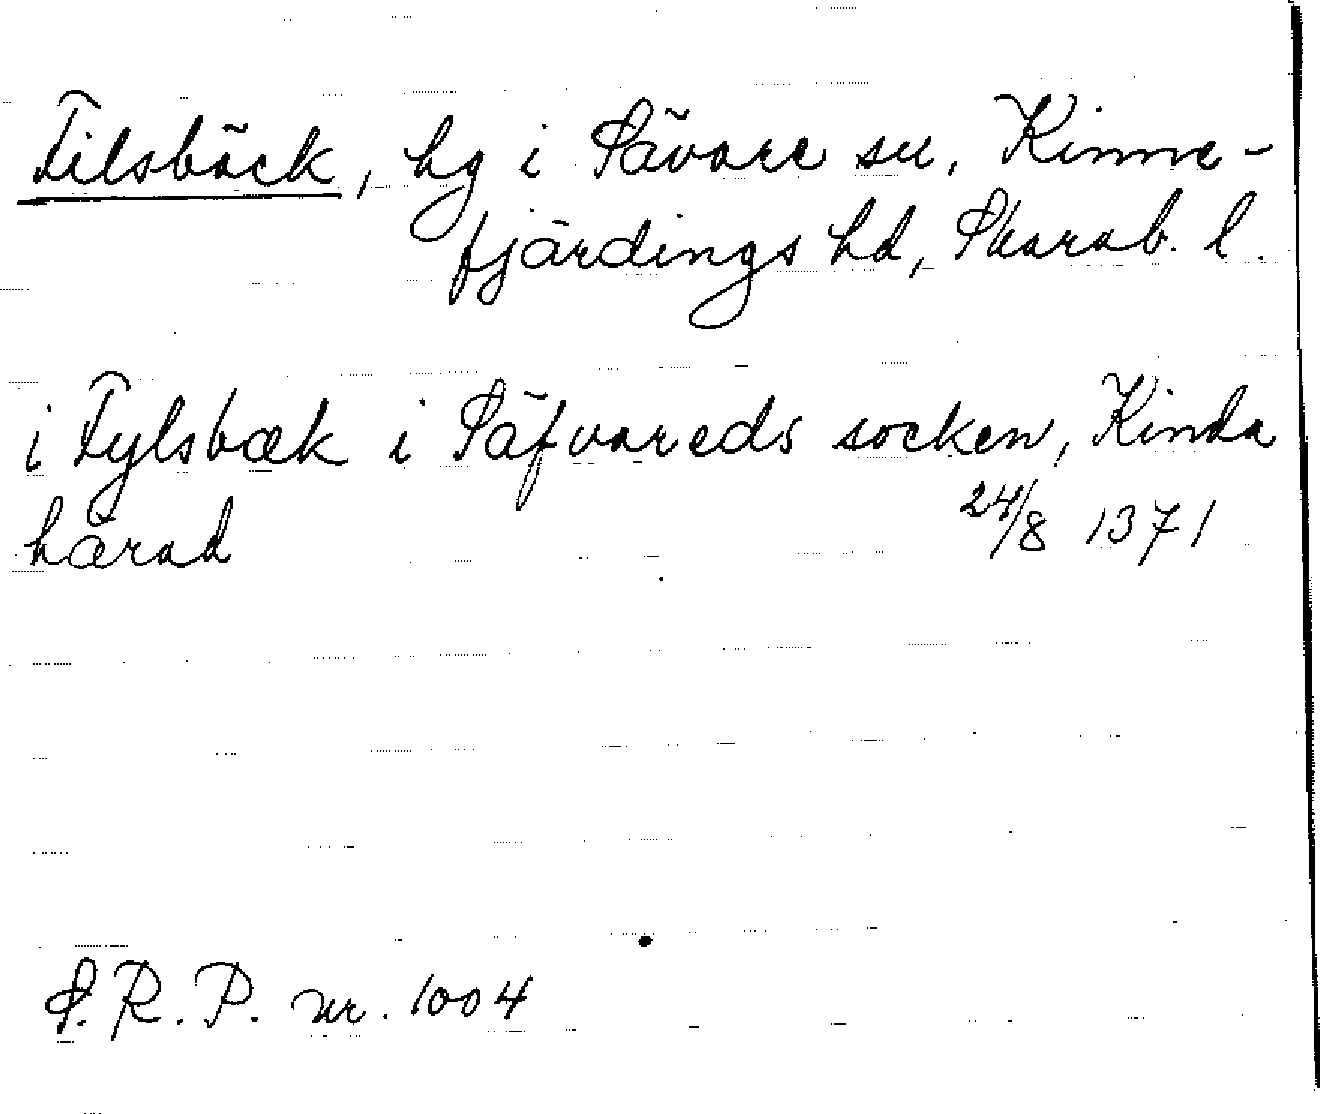 Filsbäck, hg i Sävare sn, Kinne-
fjärdings hd, Skarab. l.
i Fylsbæk i Säfvareds socken, Kinda
hærad 24/8 1371
S. R. P. nr. 1004